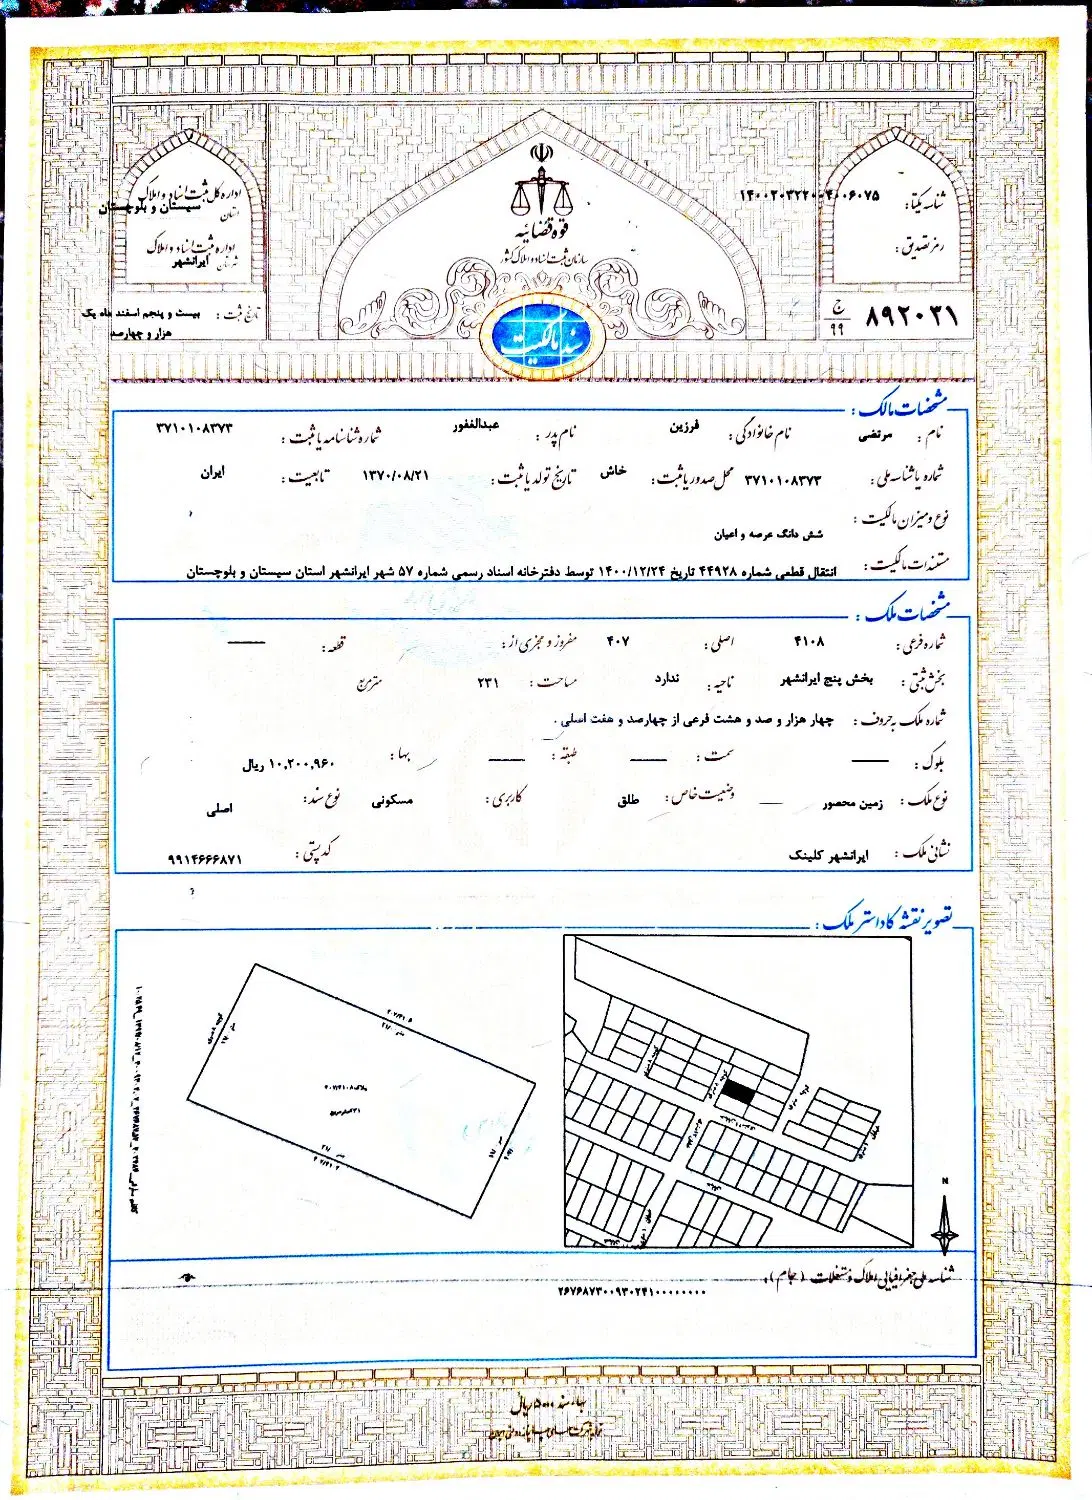 قوه قضائیه
سازمان ثبت اسناد و املاک کشور
سند مالکیت
شناسه یکتا: ۱۴۰۰۲۰۳۲۲۰۰۴۰۰۶۰۷۵
رمز تصدیق:
۸۹۲۰۳۱ ج ۹۹
اداره کل ثبت اسناد و املاک
استان سیستان و بلوچستان
اداره ثبت اسناد و املاک
شهرستان ایرانشهر
تاریخ ثبت: بیست و پنجم اسفند ماه یک
هزار و چهارصد
مشخصات مالک:
نام: مرتضی نام خانوادگی: فرزین نام پدر: عبدالغفور شماره شناسنامه یا ثبت: ۳۷۱۰۱۰۸۳۷۳
شماره یا شناسه ملی: ۳۷۱۰۱۰۸۳۷۳ محل صدور یا ثبت: خاش تاریخ تولد یا ثبت: ۱۳۷۰/۰۸/۲۱ تابعیت: ایران
نوع و میزان مالکیت:
شش دانگ عرصه و اعیان
مستندات مالکیت: انتقال قطعی شماره ۴۴۹۲۸ تاریخ ۱۴۰۰/۱۲/۲۴ توسط دفترخانه اسناد رسمی شماره ۵۷ شهر ایرانشهر استان سیستان و بلوچستان
مشخصات ملک:
شماره فرعی: ۴۱۰۸ اصلی: ۴۰۷ مفروز و مجزی از: قطعه: ——
بخش ثبتی: بخش پنج ایرانشهر ناحیه: ندارد مساحت: ۲۳۱ مترمربع
شماره ملک به حروف: چهار هزار و صد و هشت فرعی از چهارصد و هفت اصلی .
بلوک: —— سمت: —— طبقه: —— بها: ۱۰,۲۰۰,۹۶۰ ریال
نوع ملک: زمین محصور — وضعیت خاص: طلق کاربری: مسکونی نوع سند: اصلی
نشانی ملک: ایرانشهر کلینک کد پستی: ۹۹۱۴۶۶۶۸۷۱
تصویر نقشه کاداستر ملک:
N
شناسه ملی جغرافیایی املاک و مستغلات (جام):
۲۶۷۶۸۷۳۰۰۹۳۰۲۴۱۰۰۰۰۰۰۰۰